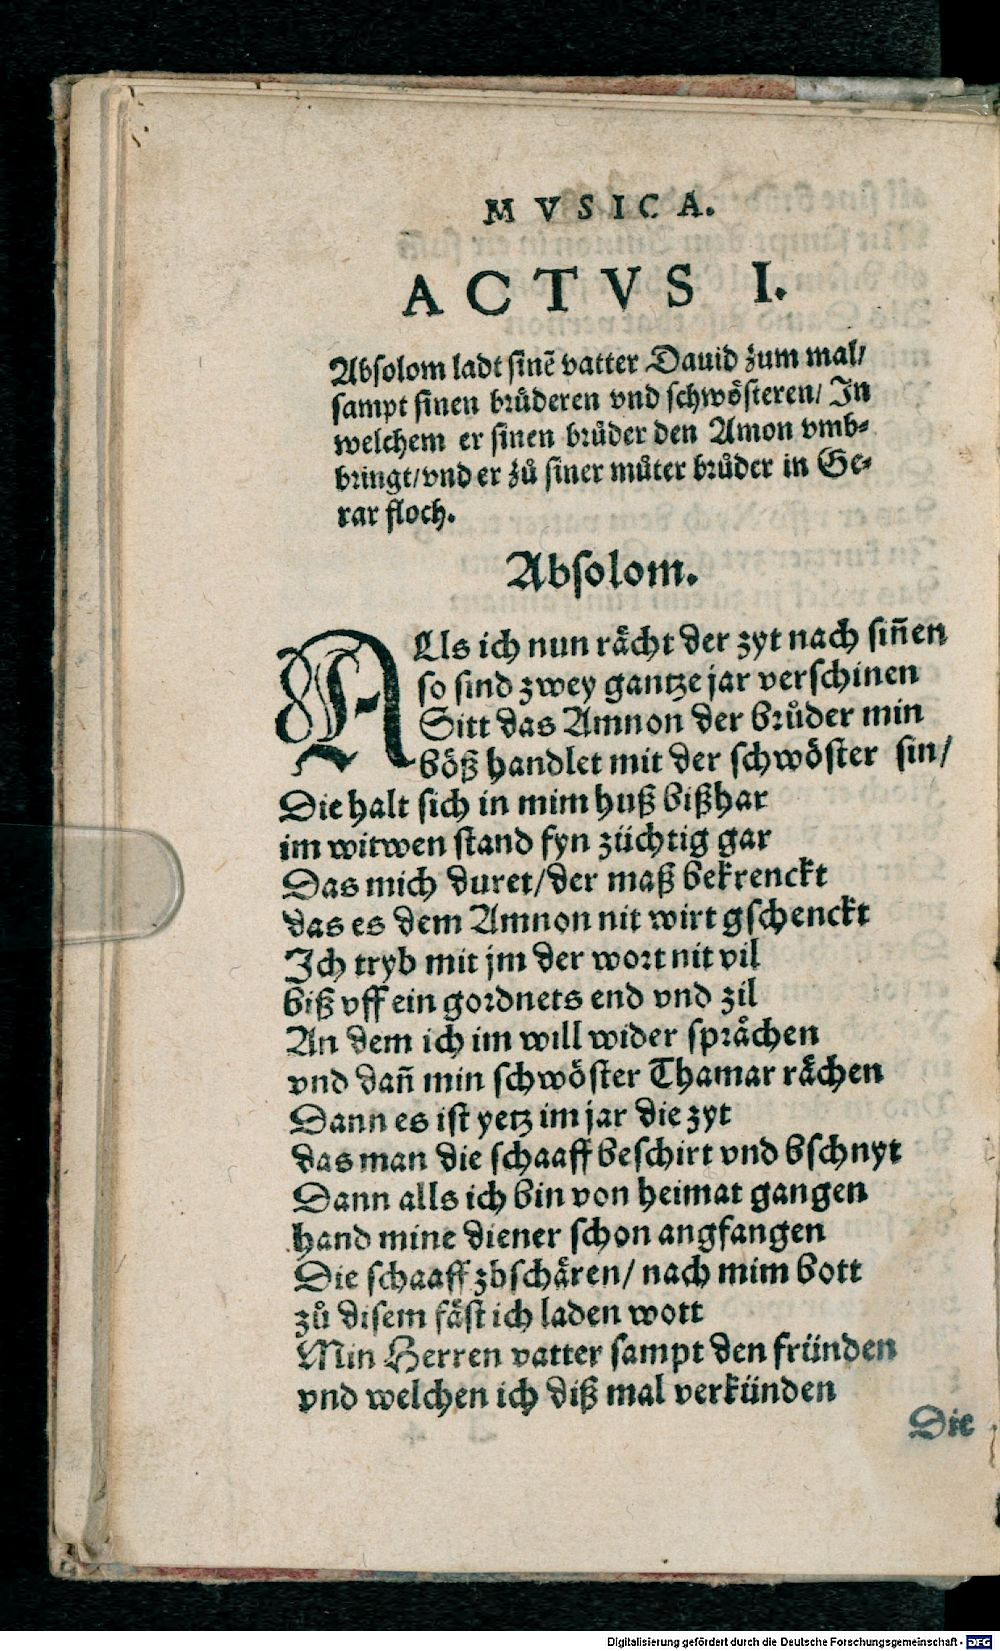 MVSICA.
ACTVS I.
Absolom ladt sinē vatter Dauid zum mal/
sampt sinen brůderen vnd schwösteren/ In
welchem er sinen brůder den Amon vmb-
bringt/ vnd er zů siner můter brůder in Ge-
rar floch.
Absolom.
ALs ich nun rächt der zyt nach siñen
so sind zwey gantze jar verschinen
Sitt das Amnon der brůder min
böß handlet mit der schwöster sin/
Die halt sich in mim huß bißhar
im witwen stand fyn züchtig gar
Das mich duret/ der maß bekrenckt
das es dem Amnon nit wirt gschenckt
Ich tryb mit jm der wort nit vil
biß vff ein gordnets end vnd zil
An dem ich im will wider sprächen
vnd dañ min schwöster Thamar rächen
Dann es ist yetz im jar die zyt
das man die schaaff beschirt vnd bschnyt
Dann alls ich bin von heimat gangen
hand mine diener schon angfangen
Die schaaff zbschären/ nach mim bott
zů disem fäst ich laden wott
Min Herren vatter sampt den fründen
vnd welchen ich diß mal verkünden
Die
Digitalisierung gefördert durch die Deutsche Forschungsgemeinschaft - DFG